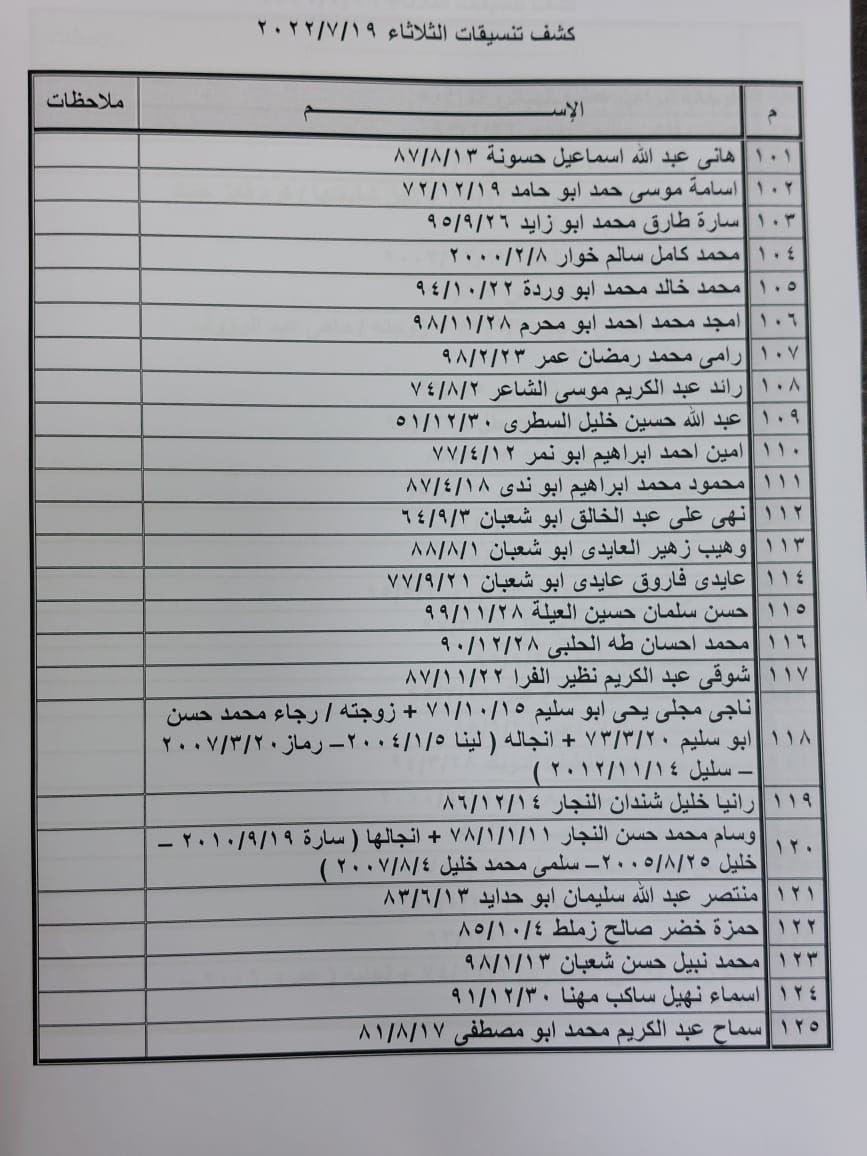 كشف تنسيقات الثلاثاء ٢٠٢٢/٧/١٩
م الإســـــم ملاحظات
١٠١ هانى عبد الله اسماعيل حسونة ٨٧/٨/١٣
١٠٢ اسامة موسى حمد ابو حامد ٧٢/١٢/١٩
١٠٣ سارة طارق محمد ابو زايد ٩٥/٩/٢٦
١٠٤ محمد كامل سالم خوار ٢٠٠٠/٢/٨
١٠٥ محمد خالد محمد ابو وردة ٩٤/١٠/٢٢
١٠٦ امجد محمد احمد ابو محرم ٩٨/١١/٢٨
١٠٧ رامى محمد رمضان عمر ٩٨/٢/٢٣
١٠٨ رائد عبد الكريم موسى الشاعر ٧٤/٨/٢
١٠٩ عبد الله حسين خليل السطرى ٥١/١٢/٣٠
١١٠ امين احمد ابراهيم ابو نمر ٧٧/٤/١٢
١١١ محمود محمد ابراهيم ابو ندى ٨٧/٤/١٨
١١٢ نهى على عبد الخالق ابو شعبان ٦٤/٩/٣
١١٣ وهيب زهير العايدى ابو شعبان ٨٨/٨/١
١١٤ عايدى فاروق عايدى ابو شعبان ٧٧/٩/٢١
١١٥ حسن سلمان حسين العيلة ٩٩/١١/٢٨
١١٦ محمد احسان طه الحلبى ٩٠/١٢/٢٨
١١٧ شوقى عبد الكريم نظير الفرا ٨٧/١١/٢٢
ناجى مجلى يحى ابو سليم ٧١/١٠/١٥ + زوجته / رجاء محمد حسن
١١٨ ابو سليم ٧٣/٣/٢٠ + انجاله ( لينا ٢٠٠٤/١/٥– رماز٢٠٠٧/٣/٢٠
– سليل ٢٠١٢/١١/١٤ )
١١٩ رانيا خليل شندان النجار ٨٦/١٢/١٤
١٢٠ وسام محمد حسن النجار ٧٨/١/١/١١ + انجالها ( سارة ٢٠١٠/٩/١٩ –
خليل ٢٠٠٥/٨/٢٥– سلمى محمد خليل ٢٠٠٧/٨/٤ )
١٢١ منتصر عبد الله سليمان ابو حدايد ٨٣/٦/١٣
١٢٢ حمزة خضر صالح زملط ٨٥/١٠/٤
١٢٣ محمد نبيل حسن شعبان ٩٨/١/١٣
١٢٤ اسماء نهيل ساكب مهنا ٩١/١٢/٣٠
١٢٥ سماح عبد الكريم محمد ابو مصطفى ٨١/٨/١٧